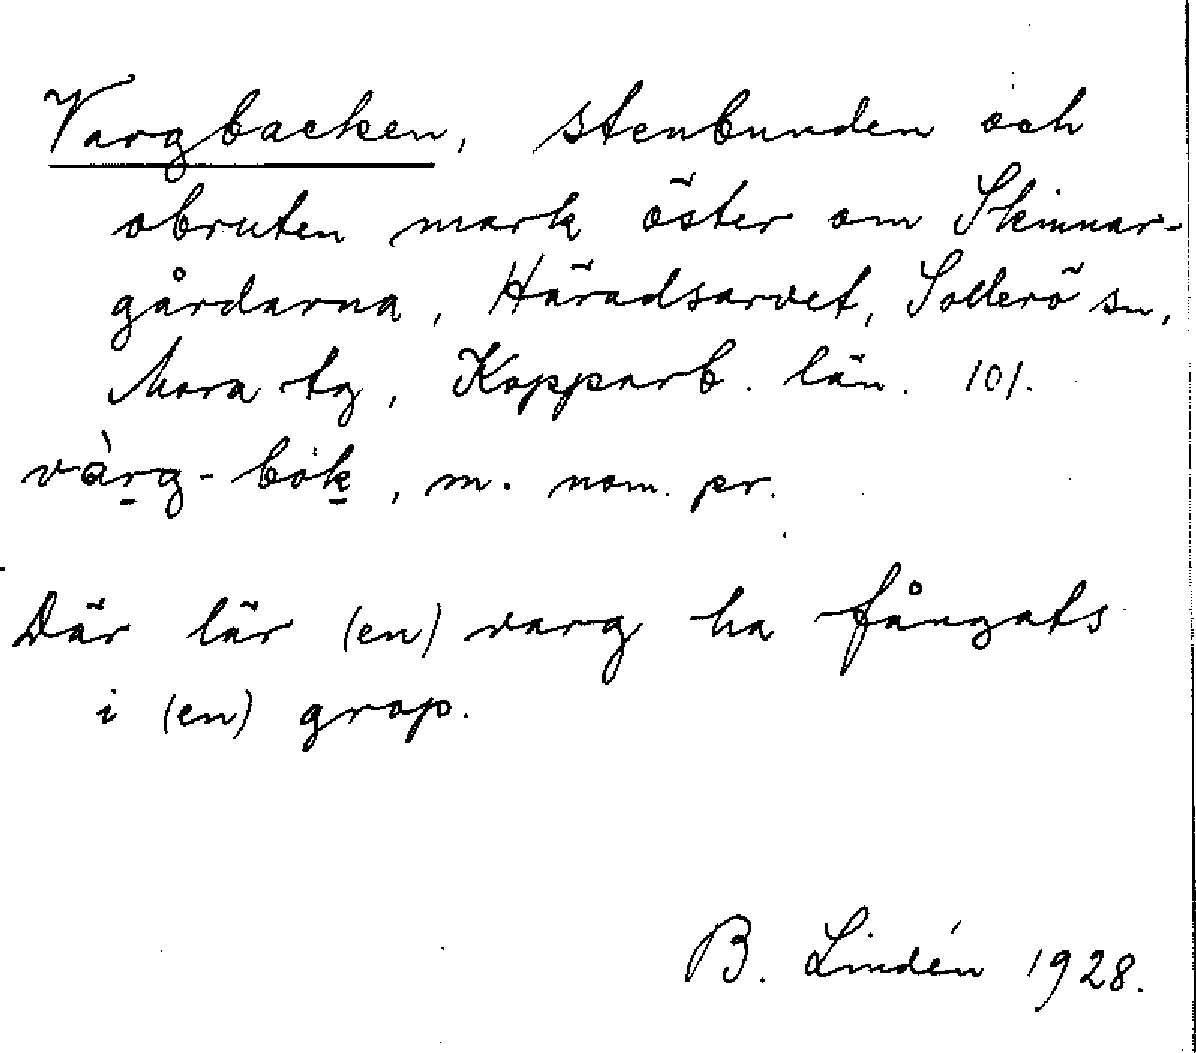 Vargbacken, stenbunden och
obruten mark öster om Skinnar-
gårdarna, Häradsarvet, Sollerö sn,
Mora tg, Kopparb. län. 101.
vàr̠g-bök̠, m. nom. pr.
Där lär (en) varg ha fångats
i (en) grop.
B. Lindén 1928.